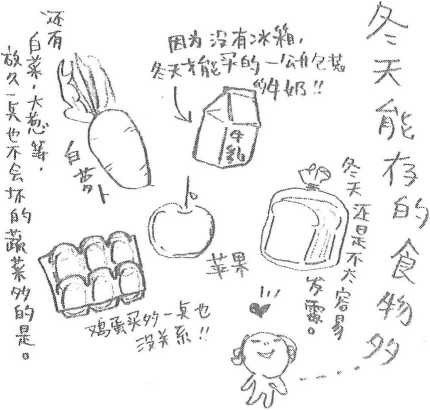 冬天能存的食物多
冬天还是不太容易
发霉。
因为没有冰箱,
冬天才能买的一公升包装
的牛奶!!
牛乳
白萝卜
苹果
鸡蛋买多一点也
没关系!!
还有
白菜,大葱等,
放久一点也不会坏的蔬菜多的是。